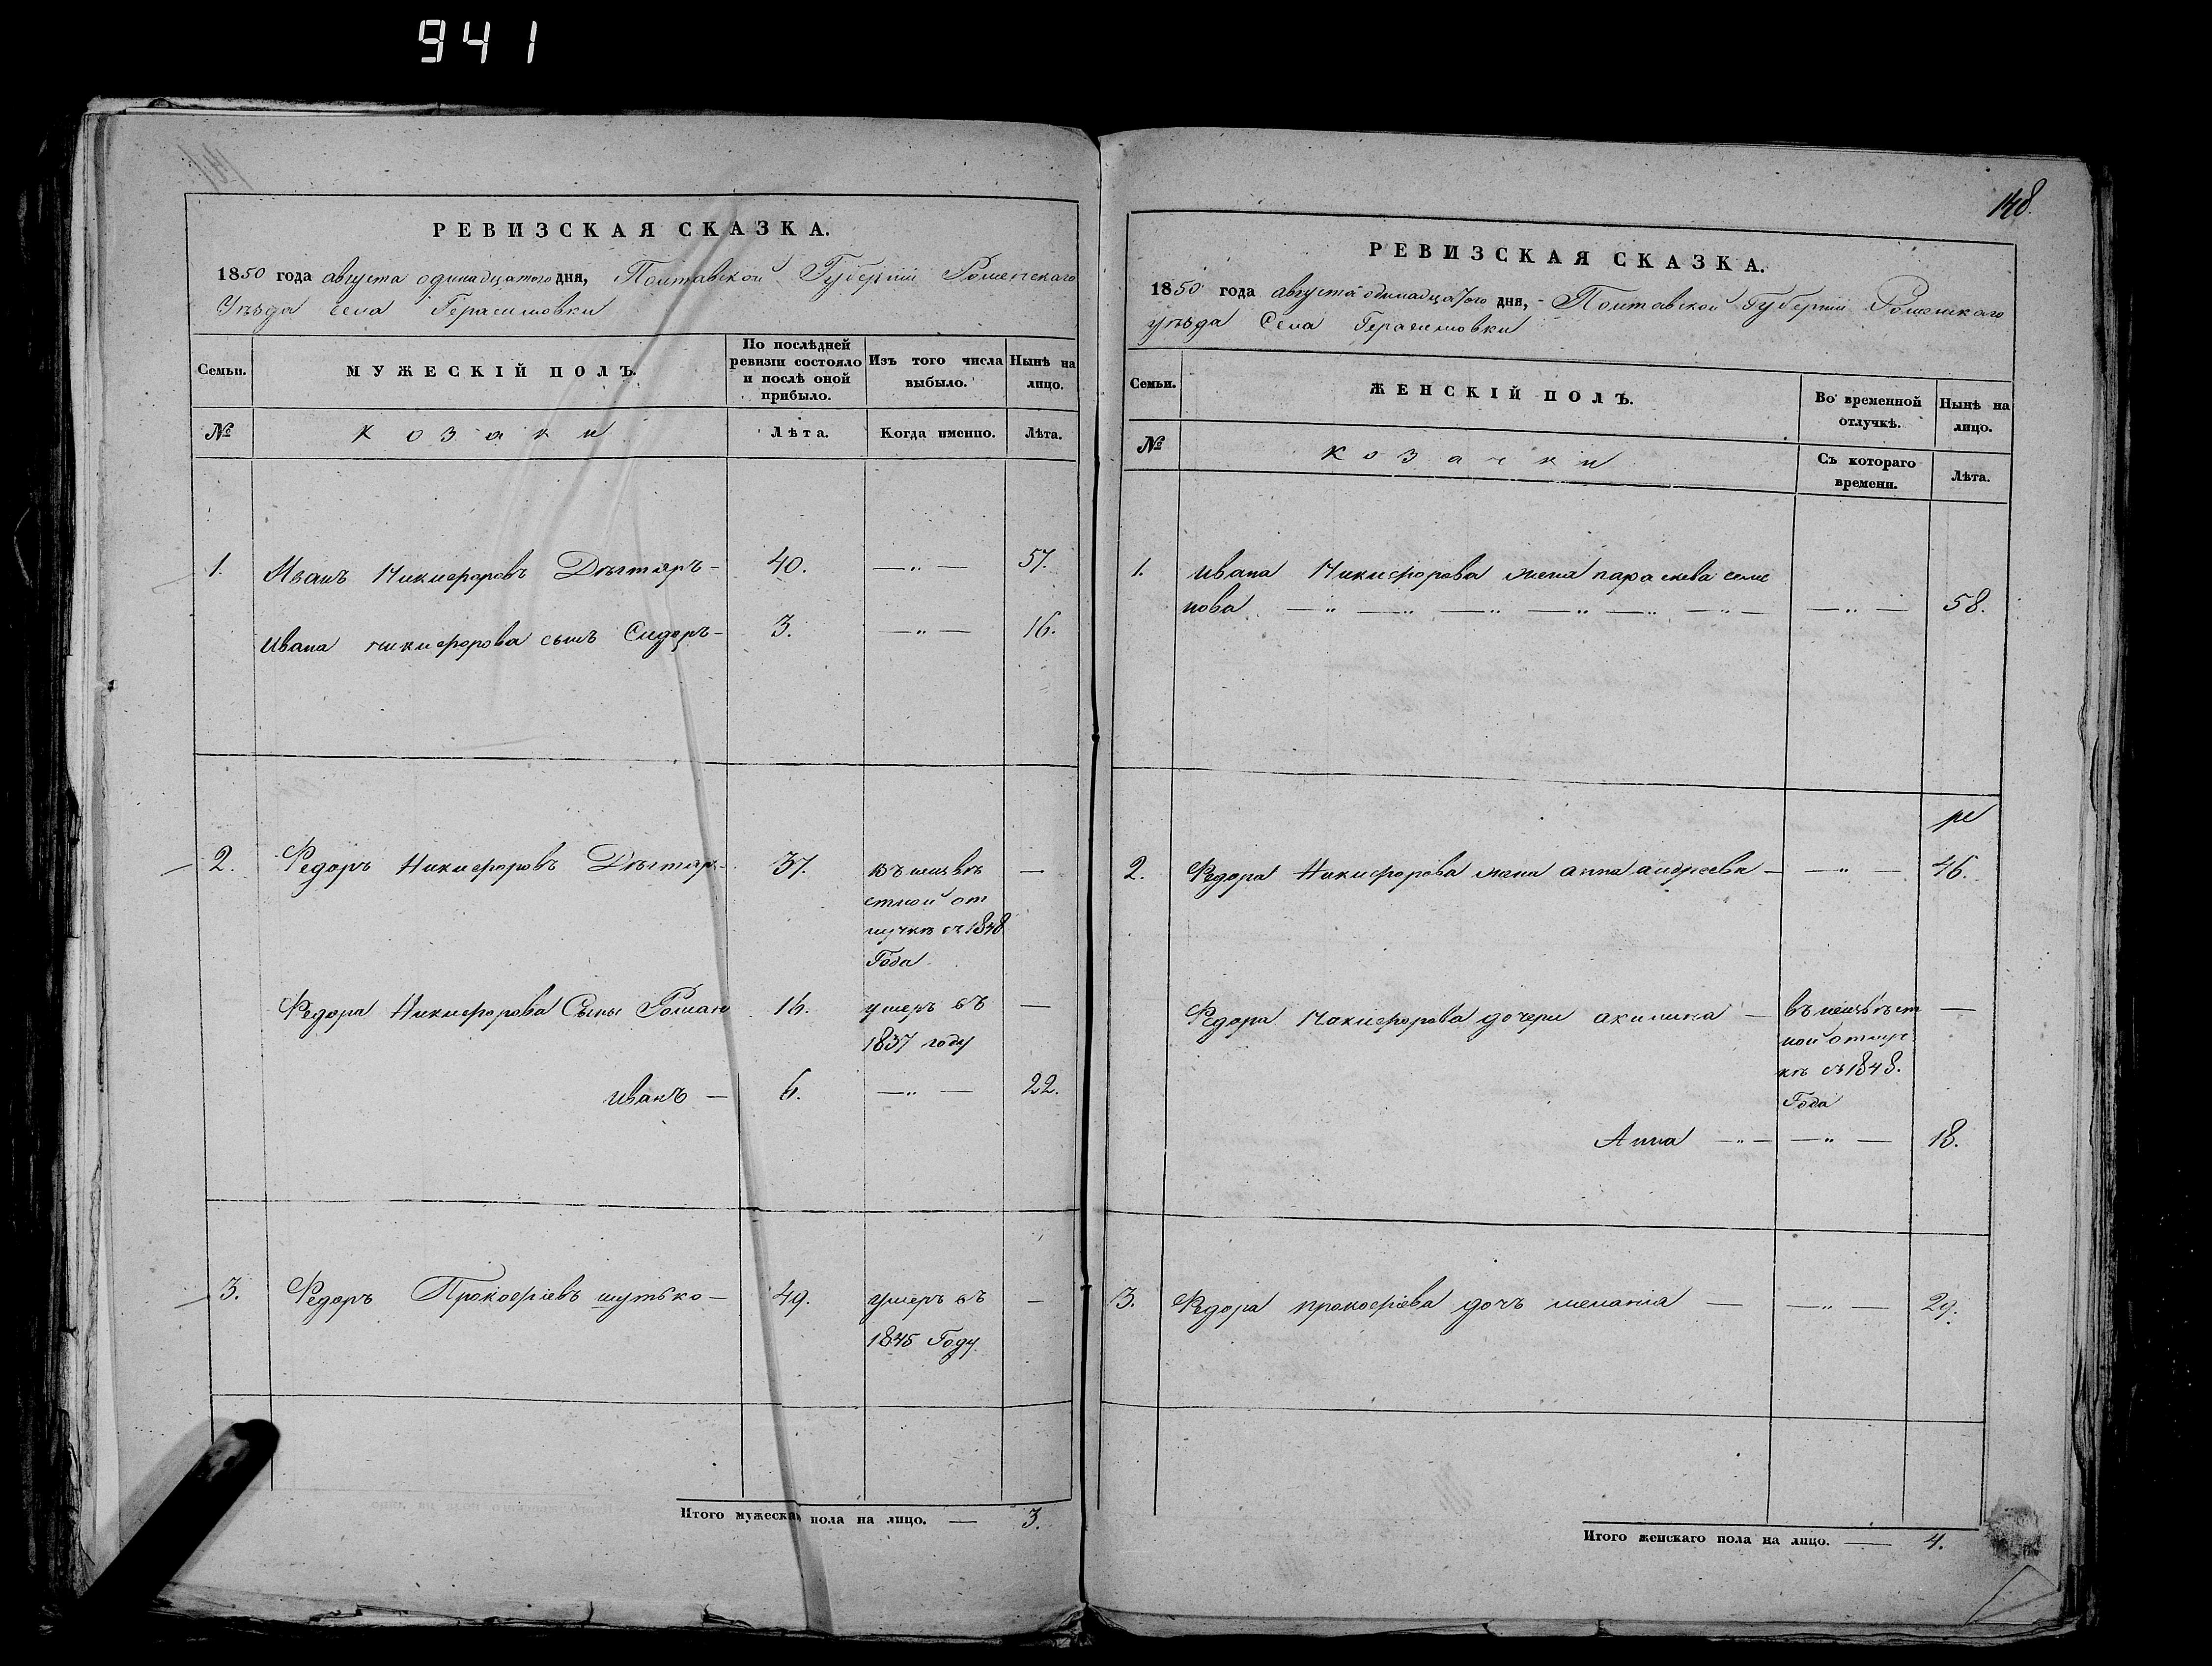 941
РЕВИЗСКАЯ СКАЗКА.
1850 года августа одинадцатого дня, Полтавской Губерніи Роменскаго
Уѣзда села Герасимовки
Семьи.
МУЖЕСКІЙ ПОЛЪ.
По послѣдней ревизіи состояло и послѣ оной прибыло.
Изъ того числа выбыло.
Нынѣ на лицо.
№
Козаки
Лѣта.
Когда именно.
Лѣта.
1. Иванъ Никифоровъ Дѣгтяръ - 40. — „ — 57.
Ивана никифорова сынъ Сидоръ - 3. — „ — 16.
2. Федоръ Никифоровъ Дѣгтяръ - 37. въ неизвѣ —
стной от
лучкѣ съ 1848
Года
Федора Никифорова Сыны Роман 16. умеръ въ —
1837 году
иванъ — 6. — „ — 22.
3. Федоръ Прокофіевъ шутько — 49. умеръ въ —
1845 Году
Итого мужеска пола на лицо. — 3.
148.
РЕВИЗСКАЯ СКАЗКА.
1850 года августа одинадцатого дня, - Полтавской Губерніи Роменскаго
уѣзда Села Герасимовки
Семьи.
ЖЕНСКІЙ ПОЛЪ.
Во временной отлучкѣ.
Нынѣ на лицо.
№
Козачки
Съ котораго времени.
Лѣта.
1. Ивана Никифорова жена параскева семе
нова — „ — „ — „ — „ — „ — „ — — „ — 58.
2. Федора Никифорова жена анна андреева — — „ — 46.
Федора Никифорова дочери акилина — въ неизвѣст —
ной отлуч
кѣ съ 1848.
Года
Анна — „ — — „ — 18.
3. Федора прокофіева дочь меланія — — „ — 29.
Итого женскаго пола на лицо. — 4.